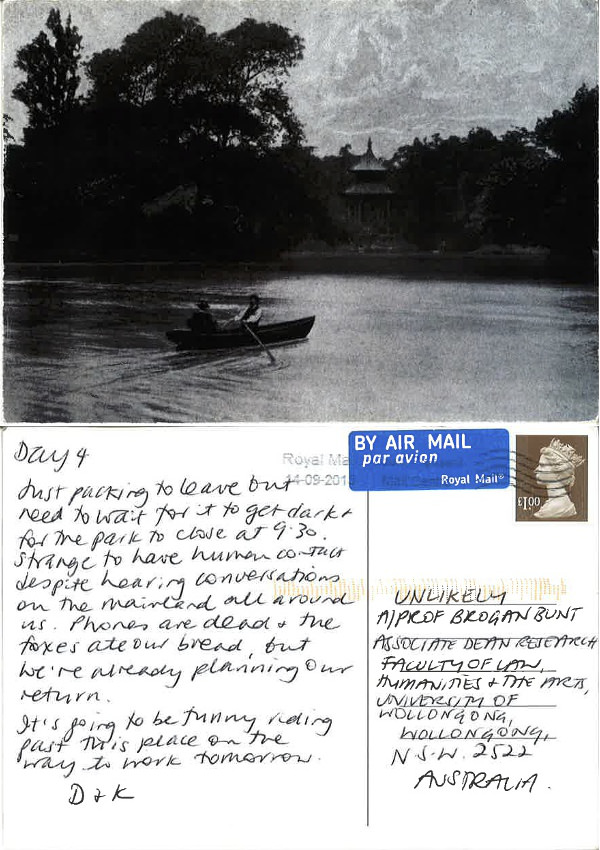 Day 4
Just packing to leave but
need to wait for it to get dark &
for the park to close at 9.30.
Strange to have human contact
despite hearing conversations
on the mainland all around
us. Phones are dead & the
foxes ate our bread, but
we're already planning our
return.
It's going to be funny riding
past this place on the
way to work tomorrow.
D & K
Royal Ma
14-09-201
BY AIR MAIL
par avion
Royal Mail®
£1.00
UNLIKELY
A/PROF BROGAN BUNT
ASSOCIATE DEAN RESEARCH
FACULTY OF LAW,
HUMANITIES & THE ARTS,
UNIVERSITY OF
WOLLONGONG,
WOLLONGONG,
N.S.W. 2522
AUSTRALIA.